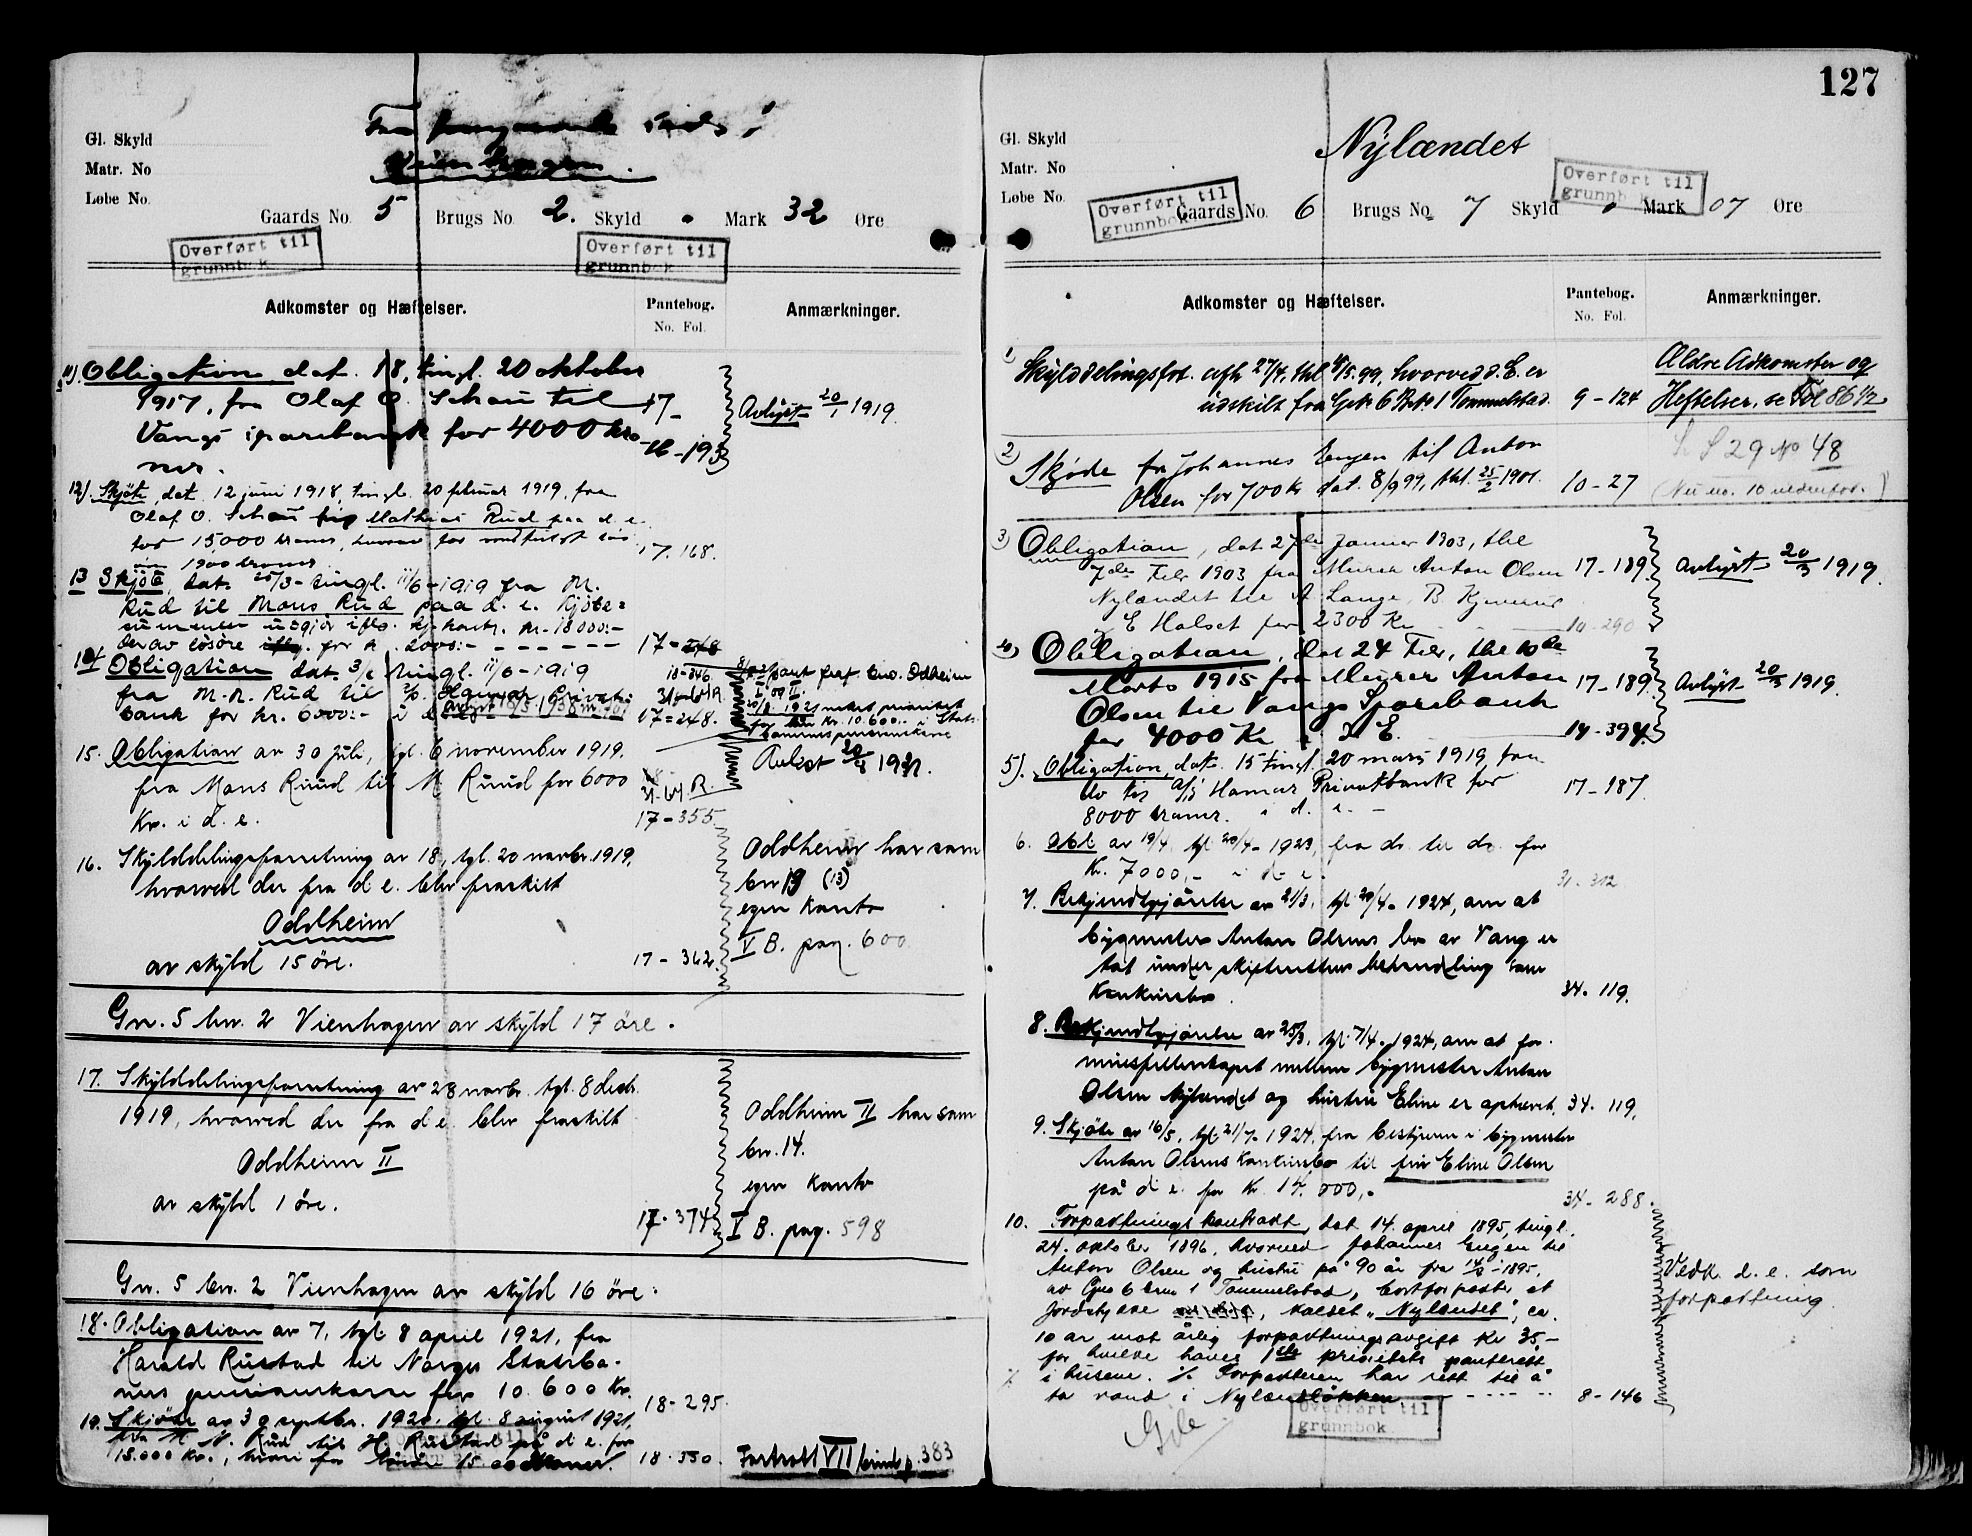 Gl. Skyld
Matr. No
Løbe No.
Fra
Gaards No. 5 Brugs No 2. Skyld • Mark 32 Øre
Overført til
grunnbok
Overført til
grunnbok
Adkomster og Hæftelser.
Pantebog.
No. Fol.
Anmærkninger.
11). Obligation dat. 18, tingl. 20 oktober
1917, fra Olaf O. Schau til
Vangs sparebank for 4000 kro-
ner.
17-
193
Avlyst 20/1 1919.
12) Skjöte, dat. 12 juni 1918, tingl. 20 februar 1919, fra
Olaf O. Schau til Mathias Rud paa d. e.
for 15,000 kroner, hvorav for
1900 kroner.
17. 168.
13 Skjöte, dat. 25/3- tingl. 11/6-1919 fra M.
Rud til Mons Rud paa d. e. Kjöbe=
summen utgjör iflg. kj. kontr. kr. 18000:-
derav lösöre for kr. 2000:- - - - - - -
17=248
14 Obligation dat. 3/6 tingl. 11/6-1919
fra M. M. Rud til A/S Hamar Privat-
bank for kr. 6000:- i d. e.
18-346
31-64 R.
17=248.
15. Obligation av 30 juli, tgl. 6 november 1919.
fra Mons Ruud til M Ruud for 6000
Kr. i d. e.
31. 64. R.
17-355.
Avlyst 20/4 1921.
16. Skylddelingsforretning av 18, tgl. 20 novbr. 1919,
hvorved der fra d e. blev fraskilt
Oddheim
av skyld 15 öre.
17- 362.
Oddheim har som
bn 19 (13)
egen konto
I B. pag. 600
Gn. 5 bn. 2 Vienhagen av skyld 17 öre.
17. Skylddelingsforretning av 28 novbr. tgl. 8 desbr.
1919, hvorved der fra d e. blev fraskilt
Oddheim II
av skyld 1 öre.
17. 374
Oddheim II har som
bn. 14.
egen konto
I B. pag. 598
Gn. 5 bn. 2 Vienhagen av skyld 16 öre.
18. Obligation av 7, tgl. 8 april 1921, fra
Harald Rustad til Norges Statsba-
ners pensionskasse for 10.600 Kr.
18-295.
19. Skjöte av 30 septbr. 1920, tgl. 8 august 1921,
fra M. M. Rud til H. Rustad på d e. for
18.000 Kr., hvori for lösöre 15 00 kroner.
18.550.
Fortsatt VII bind p. 383
127
Gl. Skyld
Matr. No
Løbe No.
Nylændet
Overført til
grunnbok
Overført til
grunnbok
Gaards No. 6 Brugs No 7 Skyld • Mark 07 Øre
Adkomster og Hæftelser.
Pantebog.
No. Fol.
Anmærkninger.
1) Skylddelingsfor. afh 27/4, thl. 4/5.99, hvorved d. E. er
udskilt fra Gn 6 Bn 1 Tommelstad.
9 - 124
Ældre Adkomster og
Heftelser, se Fol 86 1/2
2) Skjøde fra Johannes Engen til Anton
Olsen for 700 Kr dat. 8/9 99, thl. 25/2 1901.
10 - 27
S 29 No 48
(Nu no. 10 nedenfor.)
3) Obligation, dat 27de Januar 1903, thl
7de Febr 1903 fra Murer Anton Olsen
Nylændet til A Lange, B. Kjemerud
& E Halset for 2300 Kr
17-189
14-290
Avlyst 20/3 1919.
4) Obligation, dat 24 Febr, thl 10de
Marts 1915 fra Murer Anton
Olsen til Vangs Sparebank
for 4000 Kr i D E.
17-189
14-394.
Avlyst 20/3 1919.
5). Obligation, dat. 15 tingl. 20 mars 1919, fra
do til A/S Hamar Privatbank for
8000 kroner. i d. e. -
17-187.
6. Obl. av 19/4. tgl. 20/4- 1923, fra do. til do. for
Kr. 7000,- i d- e.
31-312
7. Bekjendtgjörelse av 21/3, tgl. 20/4. 1924, om at
bygmester Anton Olsens bo av Vang er
tat under skifterettens behandling som
Konkursbo.
34. 119.
8. Bekjendtgjörelse av 25/3, tgl. 7/4. 1924, om at for-
muesfellesskapet mellem bygmester Anton
Olsen Nylændet og hustru Eline er ophævet.
34. 119.
9. Skjöte av 16/5, tgl. 21/7. 1924, fra bestyrern i bygmester
Anton Olsens konkursbo til fru Eline Olsen
på d e. for Kr. 14.000,-
34- 288.
10. Forpaktningskontrakt, dat 14. april 1895, tingl.
24. oktober 1896, hvorved Johannes Engen til
Anton Olsen og hustru på 90 år fra 14/4-1895,
av Gno 6 bno 1 Tommelstad, bortforpakter et
jordstykke kaldet „Nylændet", ca.
10 ar mot årlig forpaktningsavgift Kr 35,-
for hvilke haves 1ste prioritets panterett
i husene. % Forpakteren har rett til å
ta vand i Nylændsløkken - - - - - -
8-146
Vedk. d. e. som
forpaktning.
Overført til
grunnbok